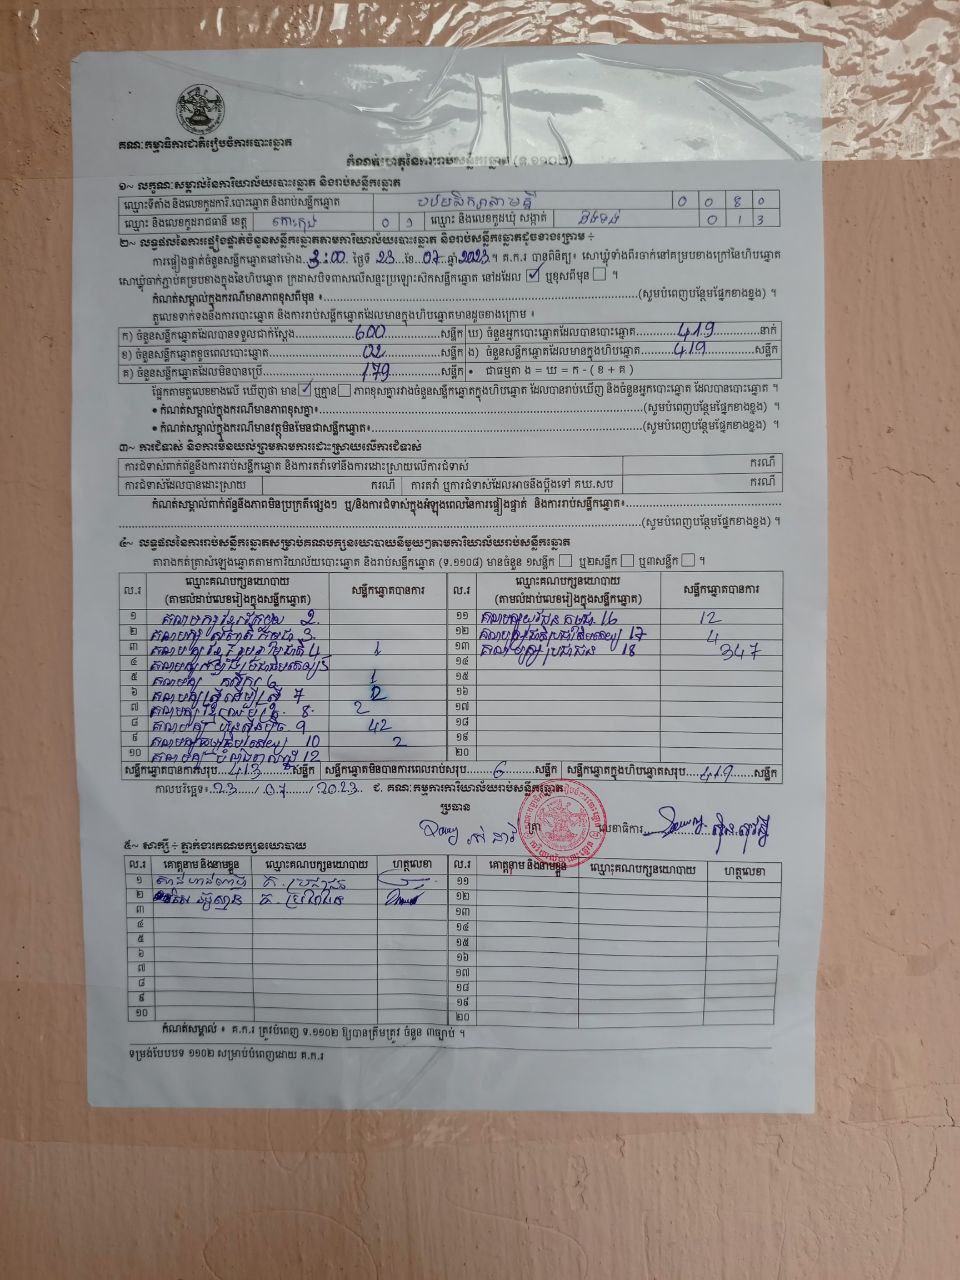 គណៈកម្មាធិការជាតិរៀបចំការបោះឆ្នោត
កំណត់ហេតុនៃការរាប់សន្លឹកឆ្នោត (ទ.១១០២)
១~ លក្ខណៈសម្គាល់នៃការិយាល័យបោះឆ្នោត និងរាប់សន្លឹកឆ្នោត
ឈ្មោះទីតាំង និងលេខកូដការិ.បោះឆ្នោត និងរាប់សន្លឹកឆ្នោត 0 0 8 0
ឈ្មោះ និងលេខកូដរាជធានី ខេត្ត កោះកុង 0 9 ឈ្មោះ និងលេខកូដឃុំ សង្កាត់ 0 1 3
២~ លទ្ធផលនៃការផ្ទៀងផ្ទាត់ចំនួនសន្លឹកឆ្នោតតាមការិយាល័យបោះឆ្នោត និងរាប់សន្លឹកដូចខាងក្រោម ÷
ការផ្ទៀងផ្ទាត់ចំនួនសន្លឹកឆ្នោតនៅម៉ោង 3:00 ថ្ងៃទី 23 ខែ 07 ឆ្នាំ 2023 ។ គ.ក.រ បានពិនិត្យ៖ សោឃ្លុំទាំងពីរចាក់នៅគម្របខាងក្រៅនៃហិបឆ្នោត
សោឃ្លុំចាក់ភ្ជាប់គម្របខាងក្នុងនៃហិបឆ្នោត ក្រដាសបិទពាសលើសន្ទះប្រឡោះសិកសន្លឹកឆ្នោត នៅដដែល ឬខុសពីមុន ។
កំណត់សម្គាល់ក្នុងករណីមានភាពខុសពីមុន ៖ (សូមបំពេញបន្ថែមផ្នែកខាងខ្នង) ។
តួលេខទាក់ទងនឹងការបោះឆ្នោត និងការរាប់សន្លឹកឆ្នោតដែលមានក្នុងហិបឆ្នោតមានដូចខាងក្រោម ៖
ក) ចំនួនសន្លឹកឆ្នោតដែលបានទទួលជាក់ស្ដែង 600 សន្លឹក ឃ) ចំនួនអ្នកបោះឆ្នោតដែលបានបោះឆ្នោត 419 នាក់
ខ) ចំនួនសន្លឹកឆ្នោតខូចពេលបោះឆ្នោត 02 សន្លឹក ង) ចំនួនសន្លឹកឆ្នោតដែលមានក្នុងហិបឆ្នោត 419 សន្លឹក
គ) ចំនួនសន្លឹកឆ្នោតដែលមិនបានប្រើ 179 សន្លឹក • ជាធម្មតា ង = ឃ = ក - ( ខ + គ )
ផ្អែកតាមតួលេខខាងលើ ឃើញថា មាន ឬគ្មាន ភាពខុសគ្នារវាងចំនួនសន្លឹកឆ្នោតក្នុងហិបឆ្នោត ដែលបានរាប់ឃើញ និងចំនួនអ្នកបោះឆ្នោត ដែលបានបោះឆ្នោត ។
• កំណត់សម្គាល់ក្នុងករណីមានភាពខុសគ្នា៖ (សូមបំពេញបន្ថែមផ្នែកខាងខ្នង) ។
• កំណត់សម្គាល់ក្នុងករណីមានវត្ថុមិនមែនជាសន្លឹកឆ្នោត៖ (សូមបំពេញបន្ថែមផ្នែកខាងខ្នង) ។
៣~ ការជំទាស់ និងការមិនយល់ព្រមតាមការដោះស្រាយលើការជំទាស់
ការជំទាស់ពាក់ព័ន្ធនឹងការរាប់សន្លឹកឆ្នោត និងការតវ៉ាទៅនឹងការដោះស្រាយលើការជំទាស់ ករណី
ការជំទាស់ដែលបានដោះស្រាយ ករណី ការតវ៉ា ឬការជំទាស់ដែលអាចនឹងប្ដឹងទៅ គឃ.សប ករណី
កំណត់សម្គាល់ពាក់ព័ន្ធនឹងភាពមិនប្រក្រតីផ្សេងៗ ឬ/និងការជំទាស់ក្នុងអំឡុងពេលនៃការផ្ទៀងផ្ទាត់ និងការរាប់សន្លឹកឆ្នោត៖
(សូមបំពេញបន្ថែមផ្នែកខាងខ្នង) ។
៤~ លទ្ធផលនៃការរាប់សន្លឹកឆ្នោតសម្រាប់គណបក្សនយោបាយនីមួយៗតាមការិយាល័យរាប់សន្លឹកឆ្នោត
តារាងកត់ត្រាសំឡេងឆ្នោតតាមការិយាល័យបោះឆ្នោត និងរាប់សន្លឹកឆ្នោត (ទ.១១០៨) មានចំនួន ១សន្លឹក ឬ២សន្លឹក ឬ៣សន្លឹក ។
ល.រ ឈ្មោះគណបក្សនយោបាយ (តាមលំដាប់លេខរៀងក្នុងសន្លឹកឆ្នោត) សន្លឹកឆ្នោតបានការ ល.រ ឈ្មោះគណបក្សនយោបាយ (តាមលំដាប់លេខរៀងក្នុងសន្លឹកឆ្នោត) សន្លឹកឆ្នោតបានការ
១ 2 ១១ គណបក្ស យុវជន កម្ពុជា 16 12
២ 3 ១២ 17 4
៣ 4 1 ១៣ គណបក្ស ប្រជាជន 18 347
៤ 5 ១៤
៥ គណបក្ស កសិករ 6 1 ១៥
៦ គណបក្ស ស្រ្តីដើម្បីស្រ្តី 7 2 ១៦
៧ 8 2 ១៧
៨ គណបក្ស ហ្វ៊ុនស៊ិនប៉ិច 9 42 ១៨
៩ 10 2 ១៩
១០ 12 ២០
សន្លឹកឆ្នោតបានការសរុប 413 សន្លឹក សន្លឹកឆ្នោតមិនបានការពេលរាប់សរុប 6 សន្លឹក សន្លឹកឆ្នោតក្នុងហិបឆ្នោតសរុប 419 សន្លឹក
កាលបរិច្ឆេទ៖ 23 / 07 / 2023 ជ. គណៈកម្មការការិយាល័យរាប់សន្លឹកឆ្នោត
ប្រធាន
ត្រា លេខាធិការ
៥~ សាក្សី÷ ភ្នាក់ងារគណបក្សនយោបាយ
ល.រ គោត្តនាម និងនាមខ្លួន ឈ្មោះគណបក្សនយោបាយ ហត្ថលេខា ល.រ គោត្តនាម និងនាមខ្លួន ឈ្មោះគណបក្សនយោបាយ ហត្ថលេខា
១ គ. ប្រជាជន ១១
២ ១២
៣ ១៣
៤ ១៤
៥ ១៥
៦ ១៦
៧ ១៧
៨ ១៨
៩ ១៩
១០ ២០
កំណត់សម្គាល់ ៖ គ.ក.រ ត្រូវបំពេញ ទ.១១០២ ឱ្យបានត្រឹមត្រូវ ចំនួន ៣ច្បាប់ ។
ទម្រង់បែបបទ ១១០២ សម្រាប់បំពេញដោយ គ.ក.រ